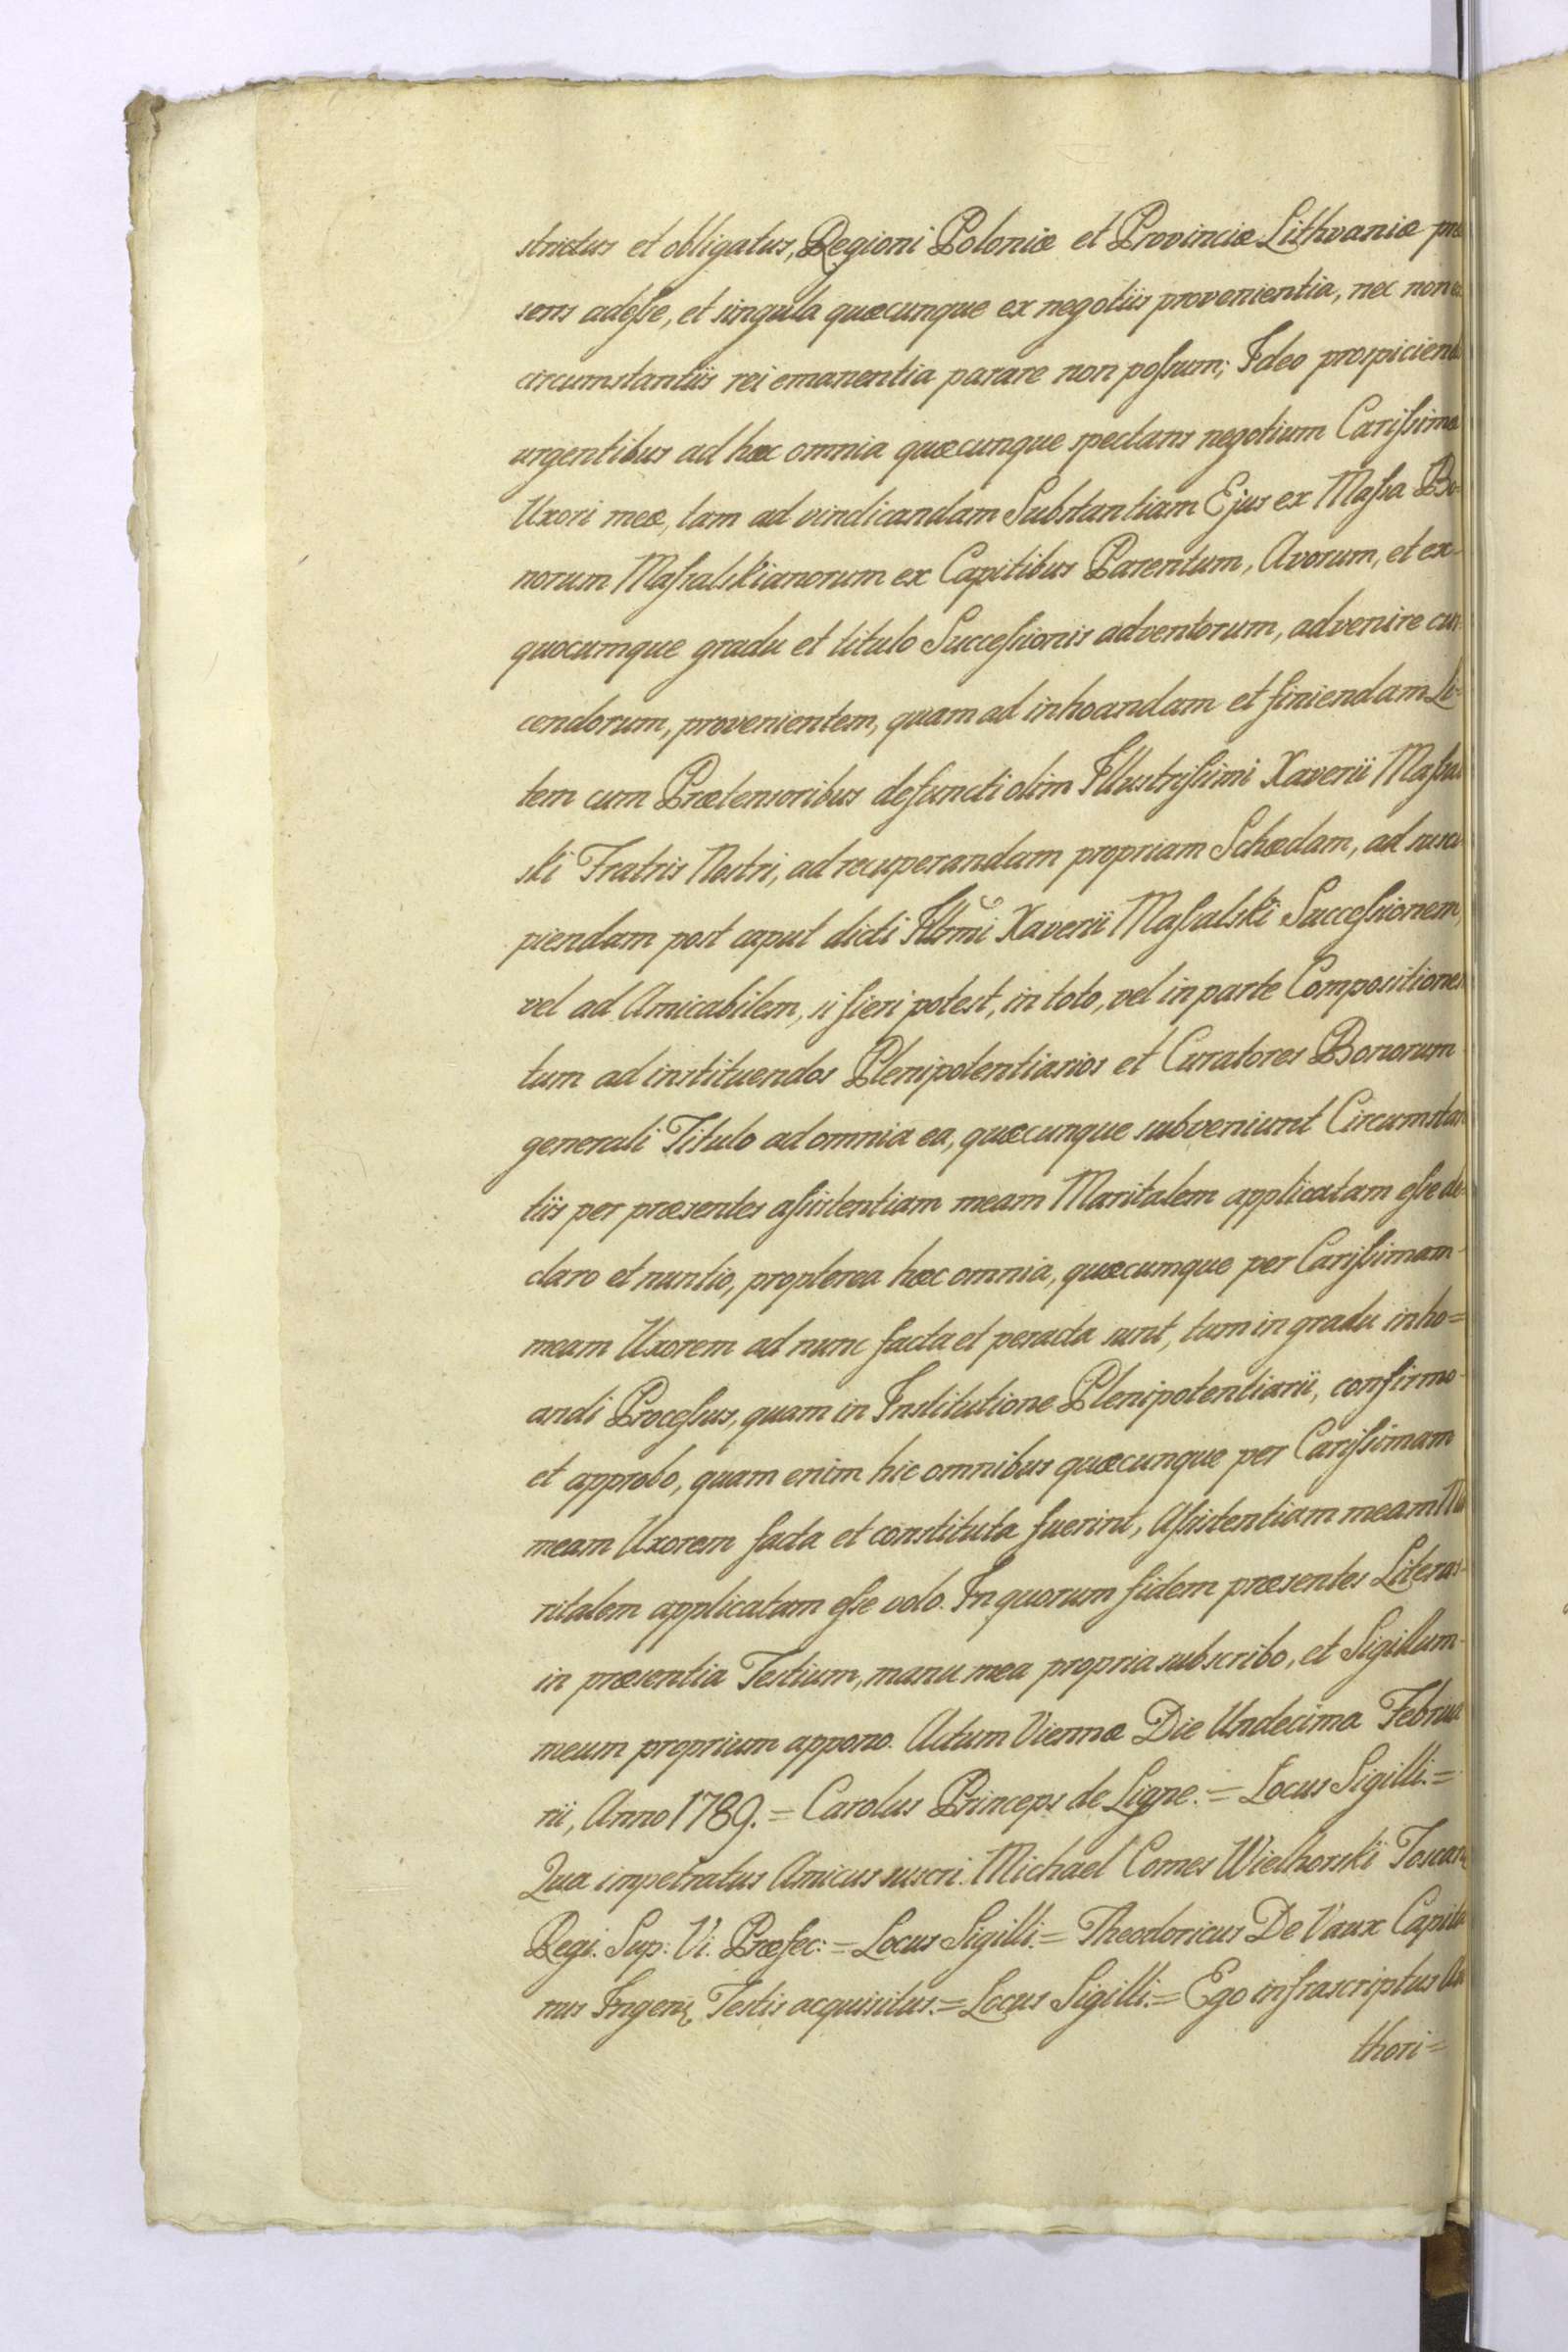 strictus et obligatus, Regioni Poloniæ et Provinciæ Lithvaniæ præ
sens adeſse, et singula quæcunque ex negotiis provenientia, nec non ex
circumstantiis rei emanentia parare non poſsum; Ideo prospiciend
urgentibus ad hæc omnia quæcunque spectans negotium Cariſsimæ
Uxori meæ, tam ad vindicandam Substantiam Ejus ex Maſsa Bo-
norum Maſsalskianorum ex Capitibus Parentum, Avorum, et ex-
quocumque gradu et titulo Succeſsionis adventorum, advenire cun
cendorum, provenientem, quam ad inhoandam et finiendam Li-
tem cum Prætensoribus defuncti olim Illustriſsimi Xaverii Maſsal
ski Fratris Nostri, ad recuperandam propriam Schædam, ad susci
piendam post caput dicti Illrmi Xaverii Maſsalski Succeſsionem,
vel ad Amicabilem, si fieri potest, in toto, vel in parte Compositionem
tum ad instituendos Plenipotentiarios et Curatores Bonorum
generali Titulo ad omnia ea, quæcunque subveniunt Circumstan
tiis per præsentes aſsistentiam meam Maritalem applicatam eſse de
claro et nuntio, propterea hæc omnia, quæcumque per Cariſsimam-
meam Uxorem ad nunc facta et peracta sunt, tum in gradu inho=
andi Proceſsus, quam in Institutione Plenipotentiarii, confirmo-
et approbo, quam enim hic omnibus quæcunque per Cariſsimam
meam Uxorem facta et constituta fuerint, Aſsistentiam meam Ma
ritalem applicatam eſse volo. In quorum fidem præsentes Literas-
in præsentia Testium, manu mea propria subscribo, et Sigillum-
meum proprium appono. Actum Viennæ Die Undecima Februa
rii, Anno 1789. = Carolus Princeps de Ligne. = Locus Sigilli. =
Qua impetratus Amicus suscri. Michael Comes Wielhorski
Regi. Sup: Vi. Præfec: = Locus Sigilli. = Theodoricus De Vaux Capita
nus Ingeni Testis acquisitus. = Locus Sigilli. = Ego infrascriptus Au
thori=